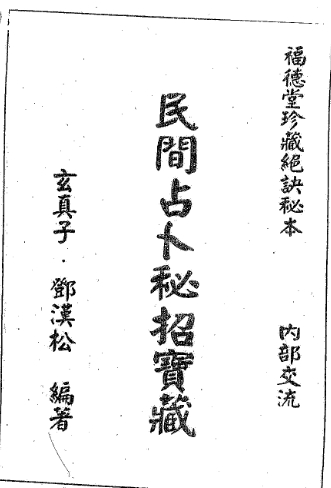 福德堂珍藏絕訣秘本　內部交流
民間占卜秘招寶藏
玄真子·鄧漢松　編著